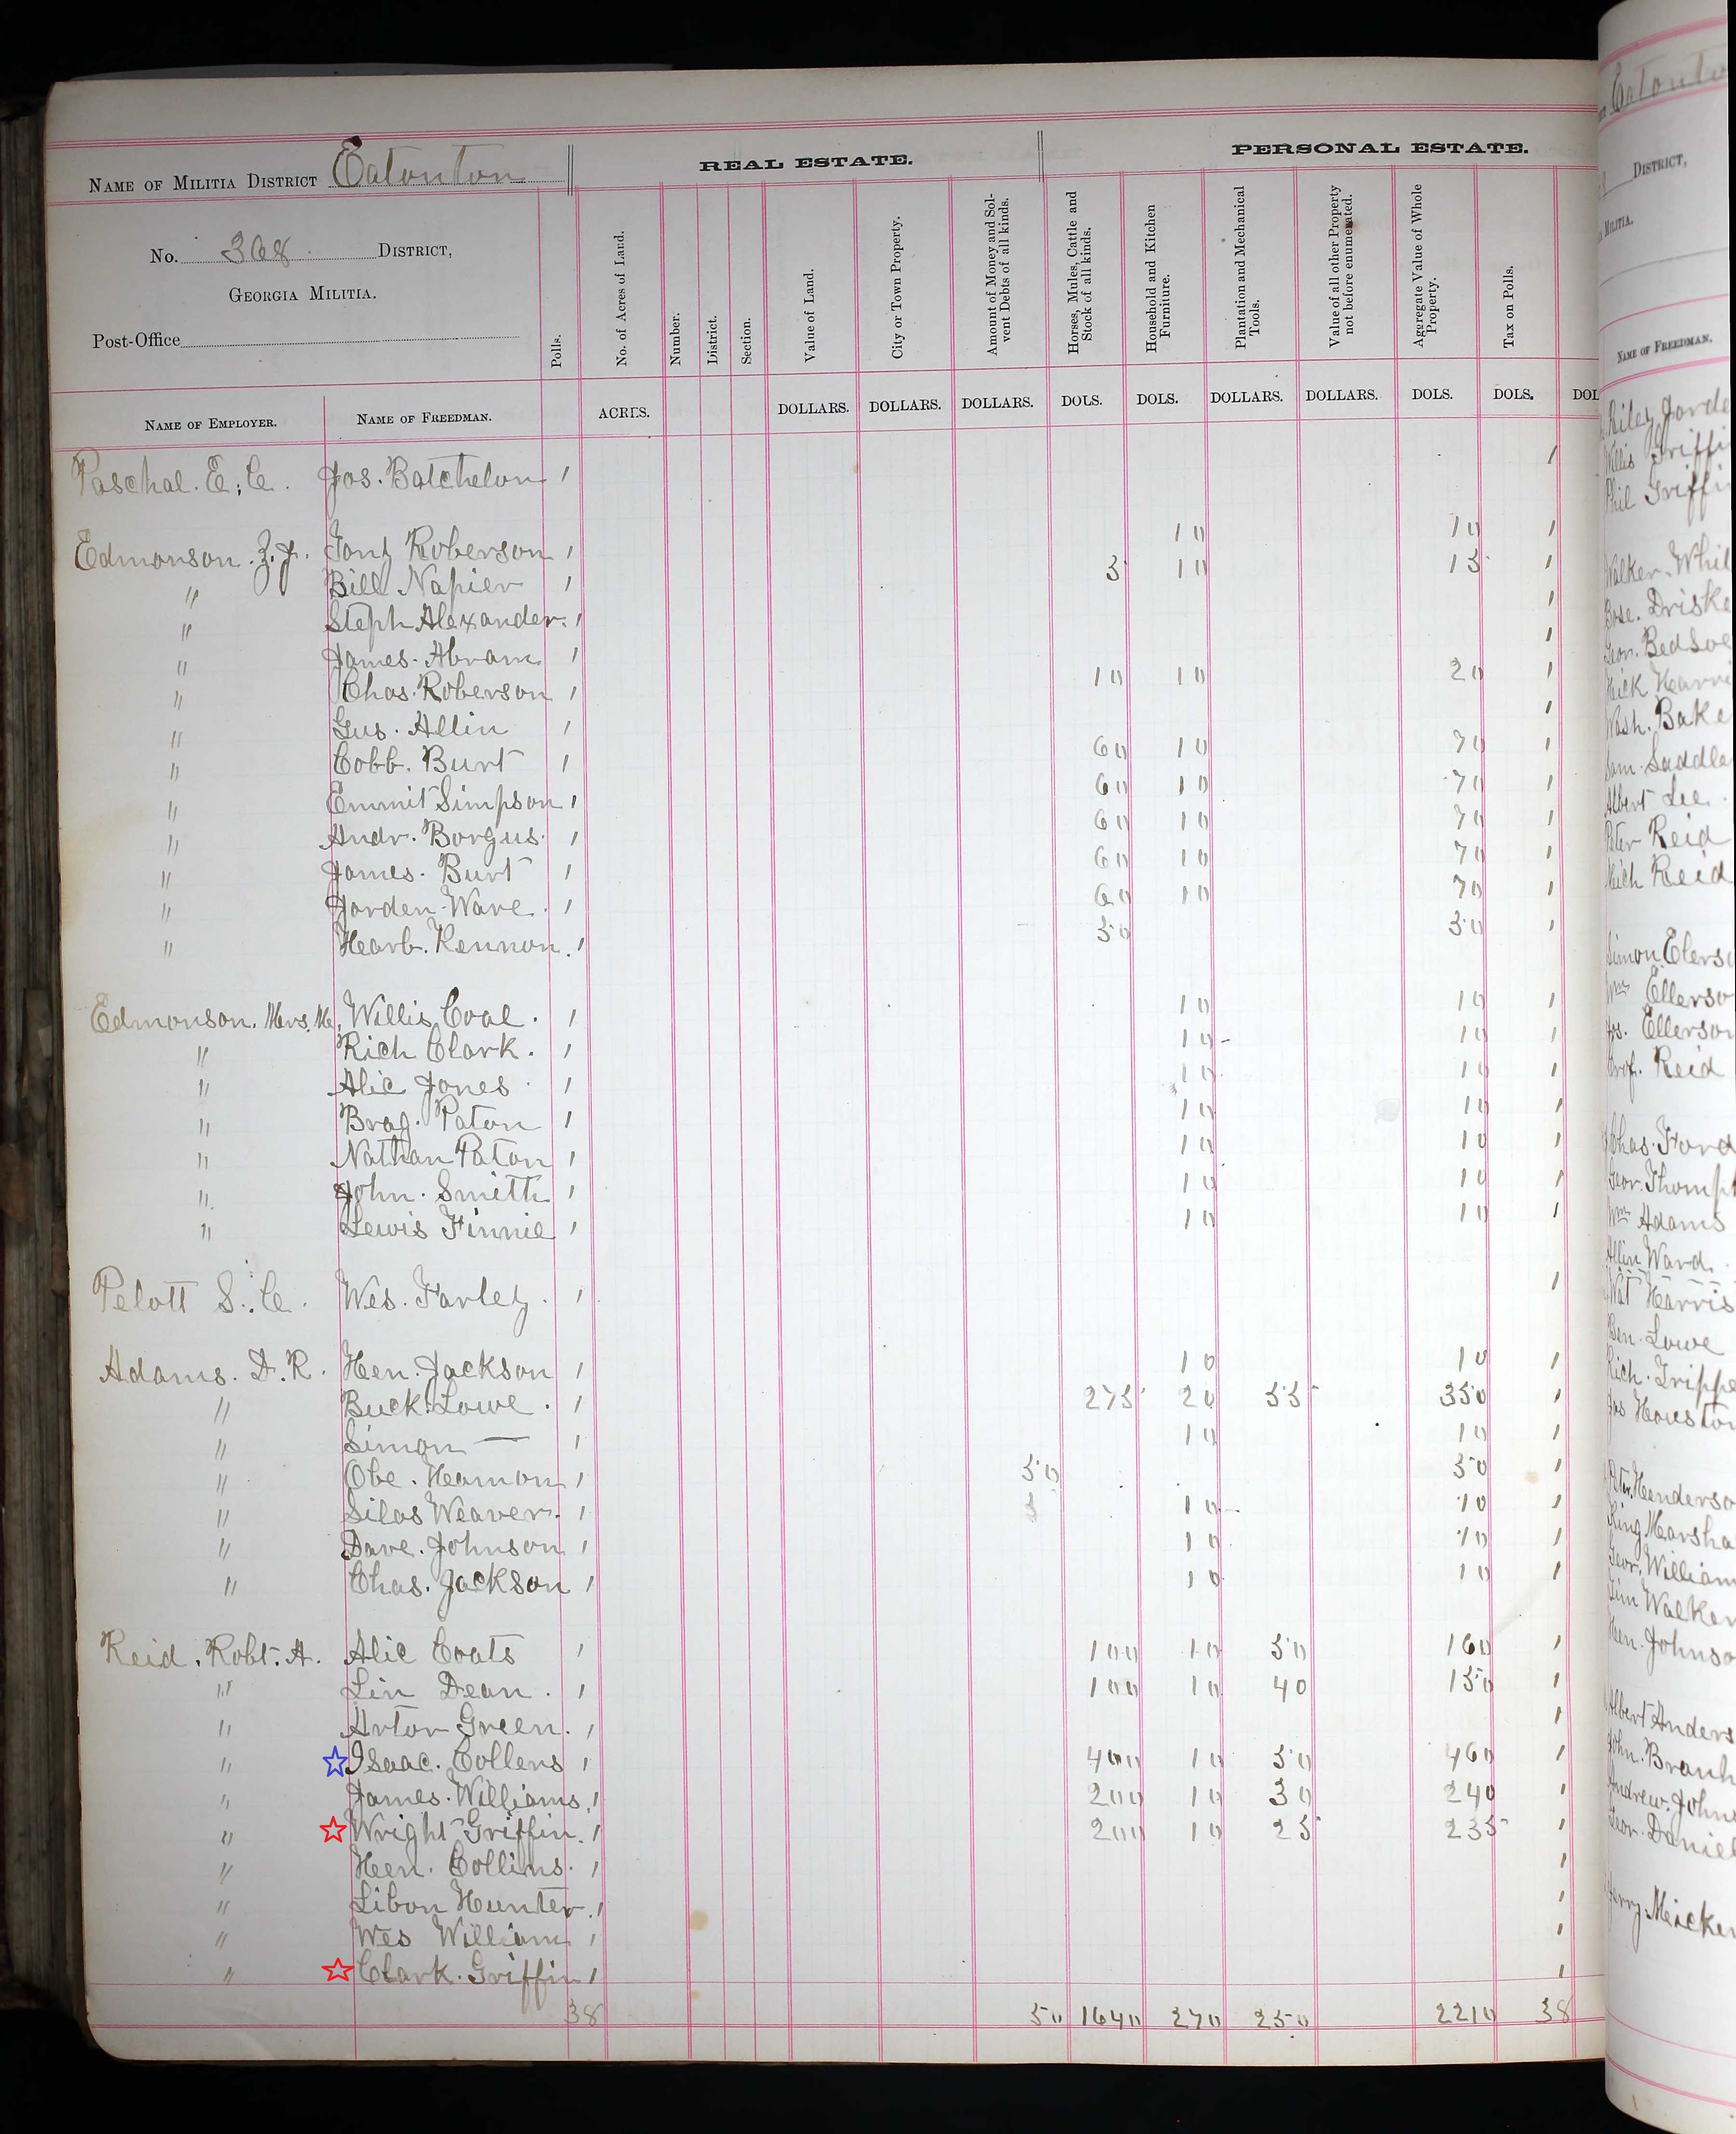 NAME OF MILITIA DISTRICT Eatonton
REAL ESTATE.
PERSONAL ESTATE.
No. 368 DISTRICT,
GEORGIA MILITIA.
Post-Office
Polls.
No. of Acres of Land.
Number.
District.
Section.
Value of Land.
City or Town Property.
Amount of Money and Sol-
vent Debts of all kinds.
Horses, Mules, Cattle and
Stock of all kinds.
Household and Kitchen
Furniture.
Plantation and Mechanical
Tools.
Value of all other Property
not before enumerated.
Aggregate Value of Whole
Property.
Tax on Polls.
NAME OF EMPLOYER. NAME OF FREEDMAN. ACRES. DOLLARS. DOLLARS. DOLLARS. DOLS. DOLS. DOLLARS. DOLLARS. DOLS. DOLS. DOL
Paschal. E. C. Jos. Batchelon 1 1
Edmonson. Z. J. Tony Roberson 1 10 10 1
" Bill Napier 1 5 10 15 1
" Steph Alexander. 1 1
" James. Abram 1 1
" Chas. Roberson 1 10 10 20 1
" Gus. Allin 1 1
" Cobb. Burt 1 60 10 70 1
" Emmit Simpson 1 60 10 70 1
" Andr. Borgus. 1 60 10 70 1
" James. Burt 1 60 10 70 1
" Jorden Ware. 1 60 10 70 1
" Hearb. Kennon. 1 50 50 1
Edmonson. Mrs. M. Willis Coal. 1 10 10 1
" Rich Clark. 1 10 10 1
" Alic Jones 1 10 10 1
" Brag. Paton 1 10 10 1
" Nathan Paton 1 10 10 1
" John. Smith 1 10 10 1
" Lewis Finnie 1 10 10 1
Pelott S. C. Wes. Farley. 1 1
Adams. D. R. Hen. Jackson 1 10 10 1
" Buck. Lowe. 1 275 20 55 350 1
" Simon — 1 10 10 1
" Obe. Hamon 1 50 50 1
" Silas Weaver. 1 10 10 1
" Dave. Johnson 1 10 10 1
" Chas. Jackson 1 10 10 1
Reid. Robt. A. Alic Coats 1 100 10 50 160 1
" Lin Dean. 1 100 10 40 150 1
" Artor Green. 1 1
" Isaac. Collens 1 400 10 50 460 1
" James. Williams. 1 200 10 30 240 1
" Wright Griffin. 1 200 10 25 235 1
" Hen. Collins. 1 1
" Libon Hunter. 1 1
" Wes William 1 1
" Clark. Griffin 1 1
38 50 1640 270 250 2210 38
Eatonto
DISTRICT,
MILITIA.
NAME OF FREEDMAN.
Riley Jorde
Willis Griffi
Phil Griffi
Walker. Whit
Bose. Driske
Geor. BedSoe
Harri
Wash. Bake
Sam. Saddle
Albert Lee.
Peter Reid
Rich Reid
Simon Elers
Wm Ellerso
Jos. Ellerson
Reid
Chas. Ford
Geor. Thomp
Wm Adams
Allin Ward.
Wat Harris
Ben. Lowe
Rich. Trippe
Jas Houston
Peter. Henderso
King Marsha
Geor. William
Jim Walker
Hen. Johnso
Albert Anders
John. Branh
Andrew. Johns
Geor. Daniel